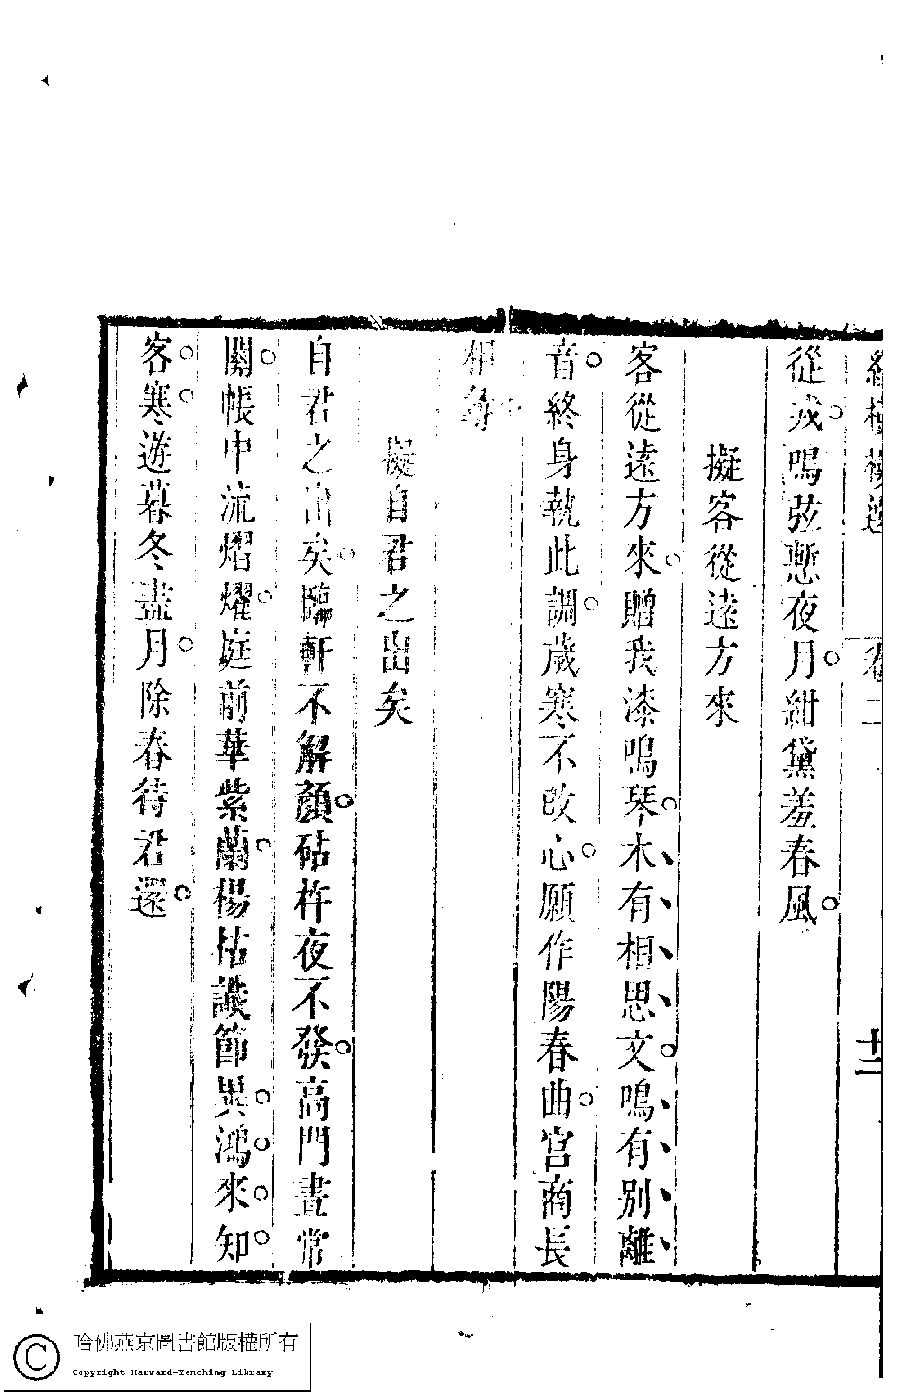 卷二
十二
從戎鳴弦慙夜月紺黛羞春風
擬客從遠方來
客從遠方來贈我漆鳴琴木有相思文鳴有別離
音終身執此調歲寒不改心願作陽春曲宮商長
相尋
擬自君之出矣
自君之出矣臨軒不解顏砧杵夜不發高門晝常
關帳中流熠燿庭前華紫蘭楊枯識節異鴻來知
客寒遊暮冬盡月除春待君還
哈佛燕京圖書館版權所有
Copyright Harvard-Yenching Library